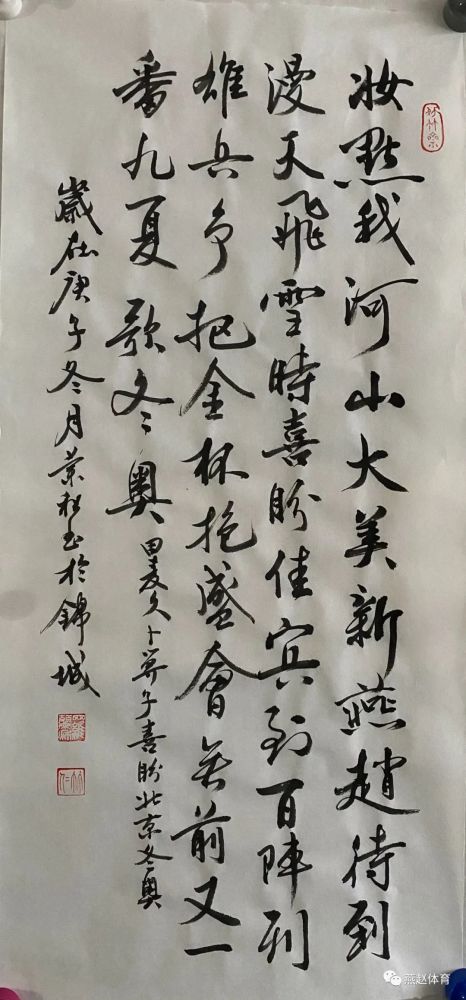 妝點我河山大美新燕趙待到
漫天飛雪時喜盼佳宾到百陣列
雄兵争把金杯抱盛會无前又一
番九夏歌冬奥
田麦久卜算子喜盼北京冬奥
歲在庚子冬月業松书於錦城
燕赵体育